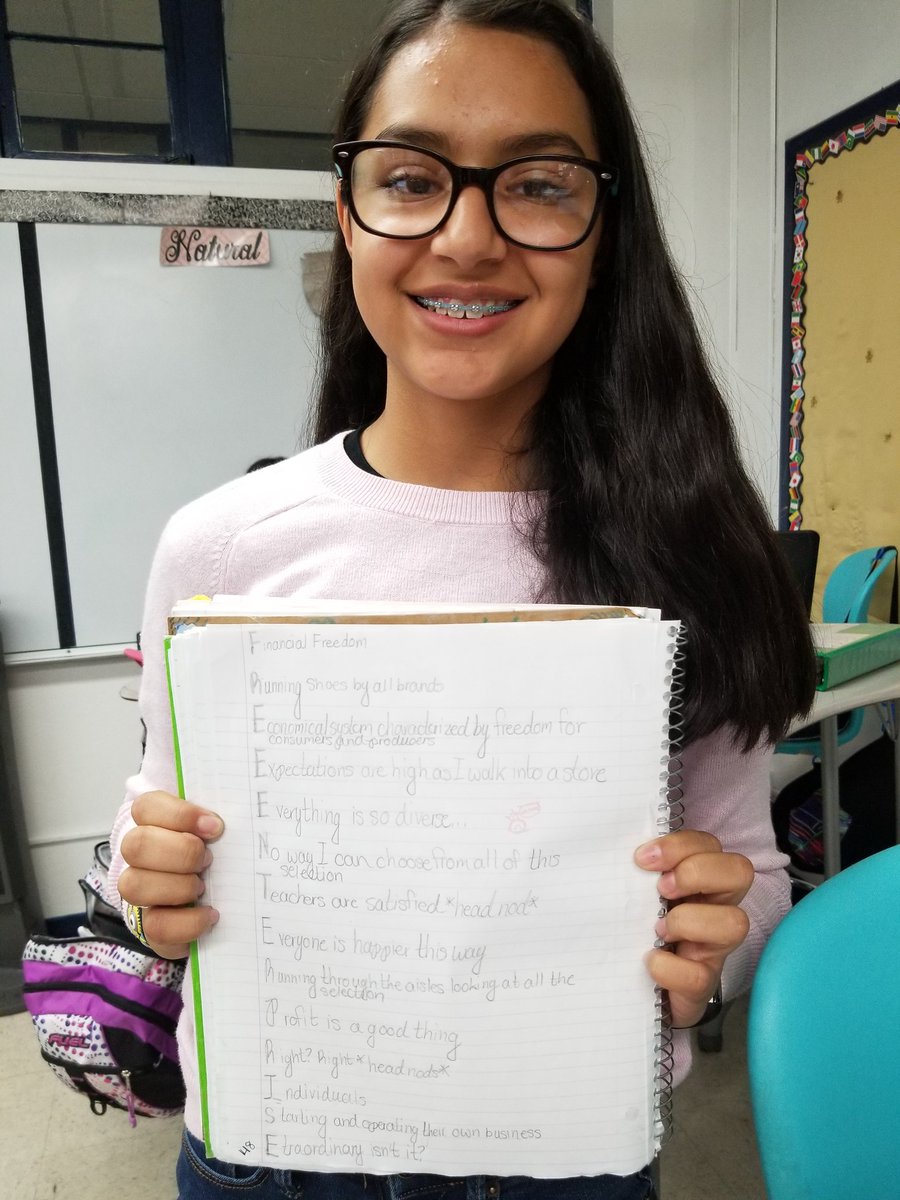 Natural
Financial Freedom
Running shoes by all brands
Economical system characterized by freedom for
consumers and producers
Expectations are high as I walk into a store
Everything is so diverse...
No way I can choose from all of this
selection
Teachers are satisfied *head nod*
Everyone is happier this way
Running through the aisles looking at all the
selection
Profit is a good thing
Right? Right *head nods*
Individuals
Starting and operating their own business
Etraordinary isn't it?
48
FUEL